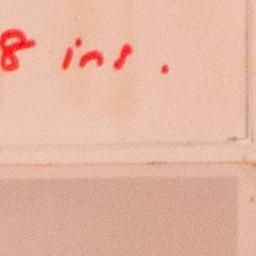 8 ins.